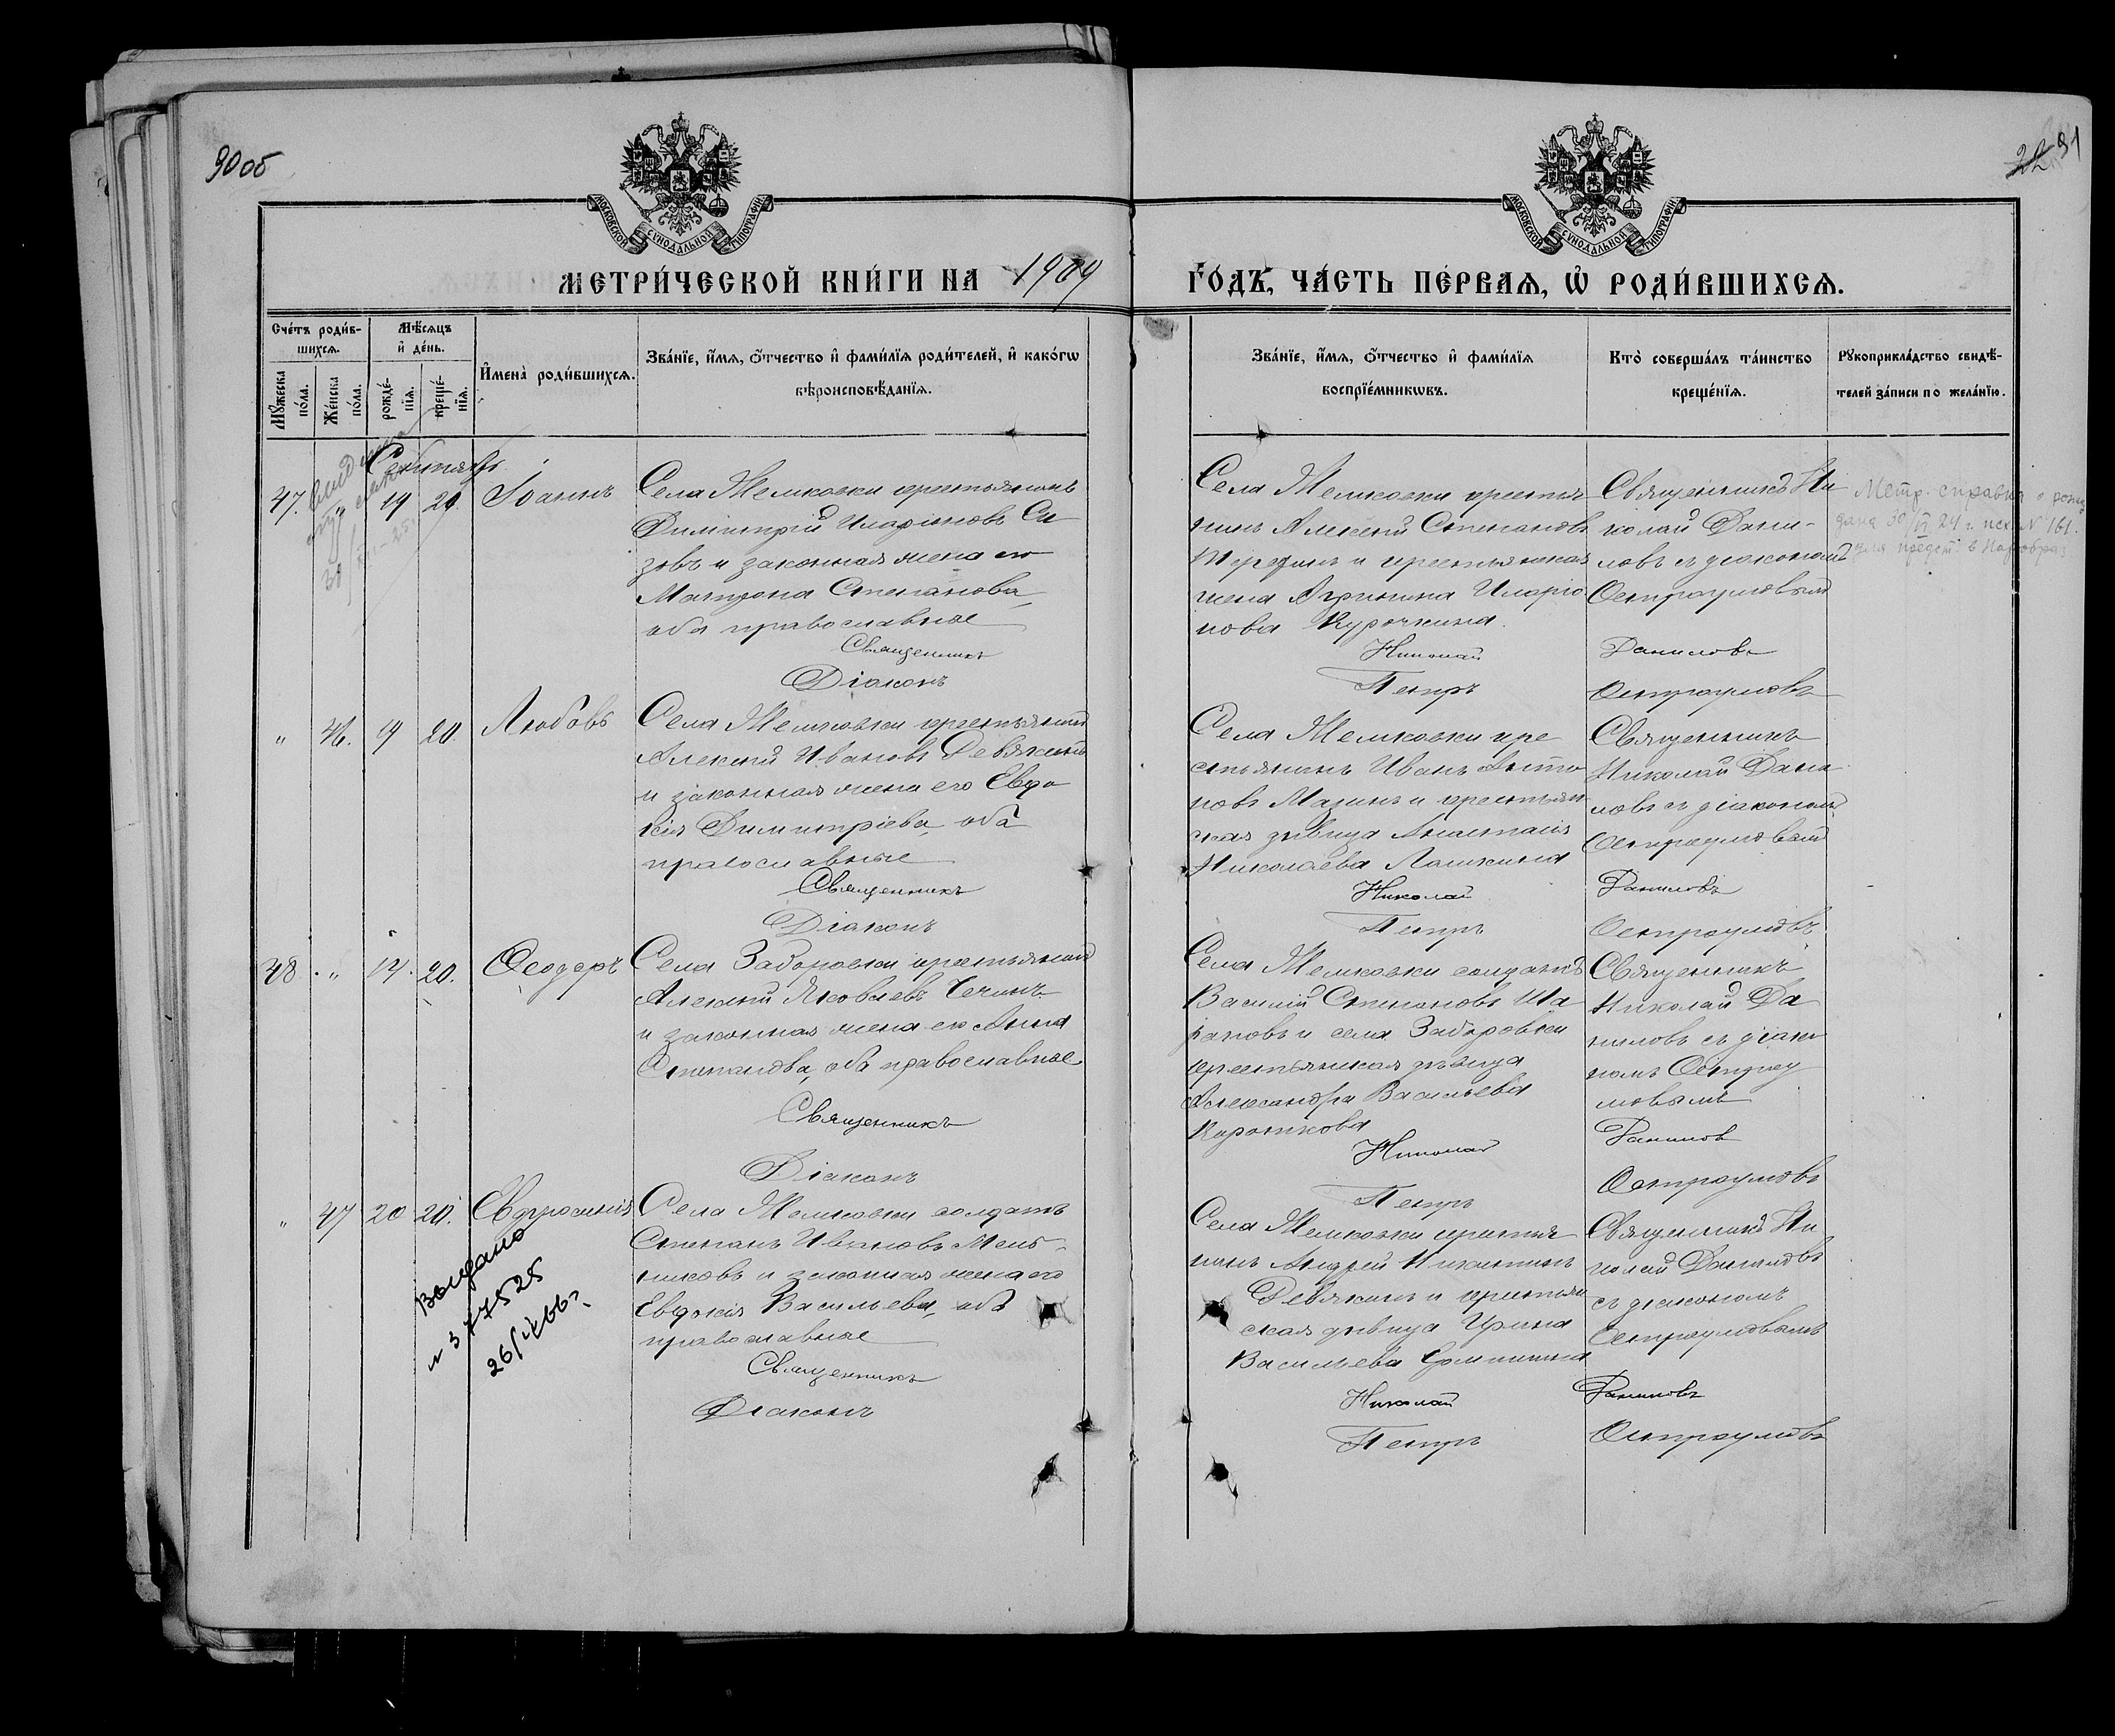 90об
22 91
МОСКОВСКОЙ СѴНОДАЛЬНОЙ ТИПОГРАФІИ
МОСКОВСКОЙ СѴНОДАЛЬНОЙ ТИПОГРАФІИ
МЕТРИ́ЧЕСКОЙ КНИ́ГИ НА 1909 ГО́ДЪ, ЧА́СТЬ ПЕ́РВАѦ, Ѡ҆ РОДИ́ВШИХСѦ.
Сче́тъ роди́в-
шихсѧ.
Мꙋ́жеска
по́ла.
Же́нска
по́ла.
Мѣ́сѧцъ
и҆ де́нь.
рожде́-
нїѧ.
креще́-
нїѧ.
И҆мена̀ роди́вшихсѧ.
Зва́нїе, и҆́мѧ, ѻ҆́тчество и҆ фами́лїѧ роди́телей, и҆ како́гѡ
вѣроисповѣ́данїѧ.
Зва́нїе, и҆́мѧ, ѻ҆́тчество и҆ фами́лїѧ
воспрїе́мникѡвъ.
Кто̀ соверша́лъ та́инство
креще́нїѧ.
Рꙋкоприкла́дство свидѣ́-
телей за́писи по жела́нїю.
Сентябрь
47. " 19 20. Іоаннъ
Села Мелковки крестьянинъ
Димитрій Иларіоновъ Си
зовъ и законная жена его
Матрона Степанова,
оба православные
Священникъ
Діаконъ
Села Мелковки крестья
нинъ Алексій Степановъ
и крестьянская
жена Агрипина Иларіо
нова Курочкина.
Николай
Петръ
Священникъ Ни
колай Дани-
ловъ съ діакономъ
Остроумовымъ
Даниловъ
Остроумовъ
Метр. справка о рожд
дана 30/VI 24 г. исх. N 161.
для предст. в Наробраз
" 46. 19 20. Любовь
Села Мелковки крестьянинъ
Алексій Ивановъ Девякинъ
и законная жена его Евдо
кія Димитріева, оба
православные
Священникъ
Діаконъ
Села Мелковки кре
стьянинъ Иванъ Анто
новъ Мазинъ и крестьян
ская дѣвица Анастасія
Николаева Лашкина
Николай
Петръ
Священникъ
Николай Дани
ловъ съ діакономъ
Остроумовымъ
Даниловъ
Остроумовъ
48. " 17. 20. Ѳеодоръ
Села Заборовки крестьянинъ
Алексій Яковлевъ Чечинъ
и законная жена его Анна
Степанова, оба православные
Священникъ
Діаконъ
Села Мелковки солдатъ
Василій Степановъ Ша
раповъ и села Заборовки
крестьянская дѣвица
Александра Васильева
Короткова
Николай
Петръ
Священникъ
Николай Да
ниловъ съ діако
номъ Остроу
мовымъ
Даниловъ
Остроумовъ
" 47 20 20. Евфросинія
Выдано
N 377525
26/IV 66 г.
Села Мелковки солдатъ
Степанъ Ивановъ Мель-
никовъ и законная жена его
Евдокія Васильева, оба
православные
Священникъ
Діаконъ
Села Мелковки крестья
нинъ Андрей Никитинъ
Девякинъ и крестьян
ская дѣвица Ирина
Васильева
Николай
Петръ
Священникъ Ни
колай Даниловъ
съ діакономъ
Остроумовымъ
Даниловъ
Остроумовъ